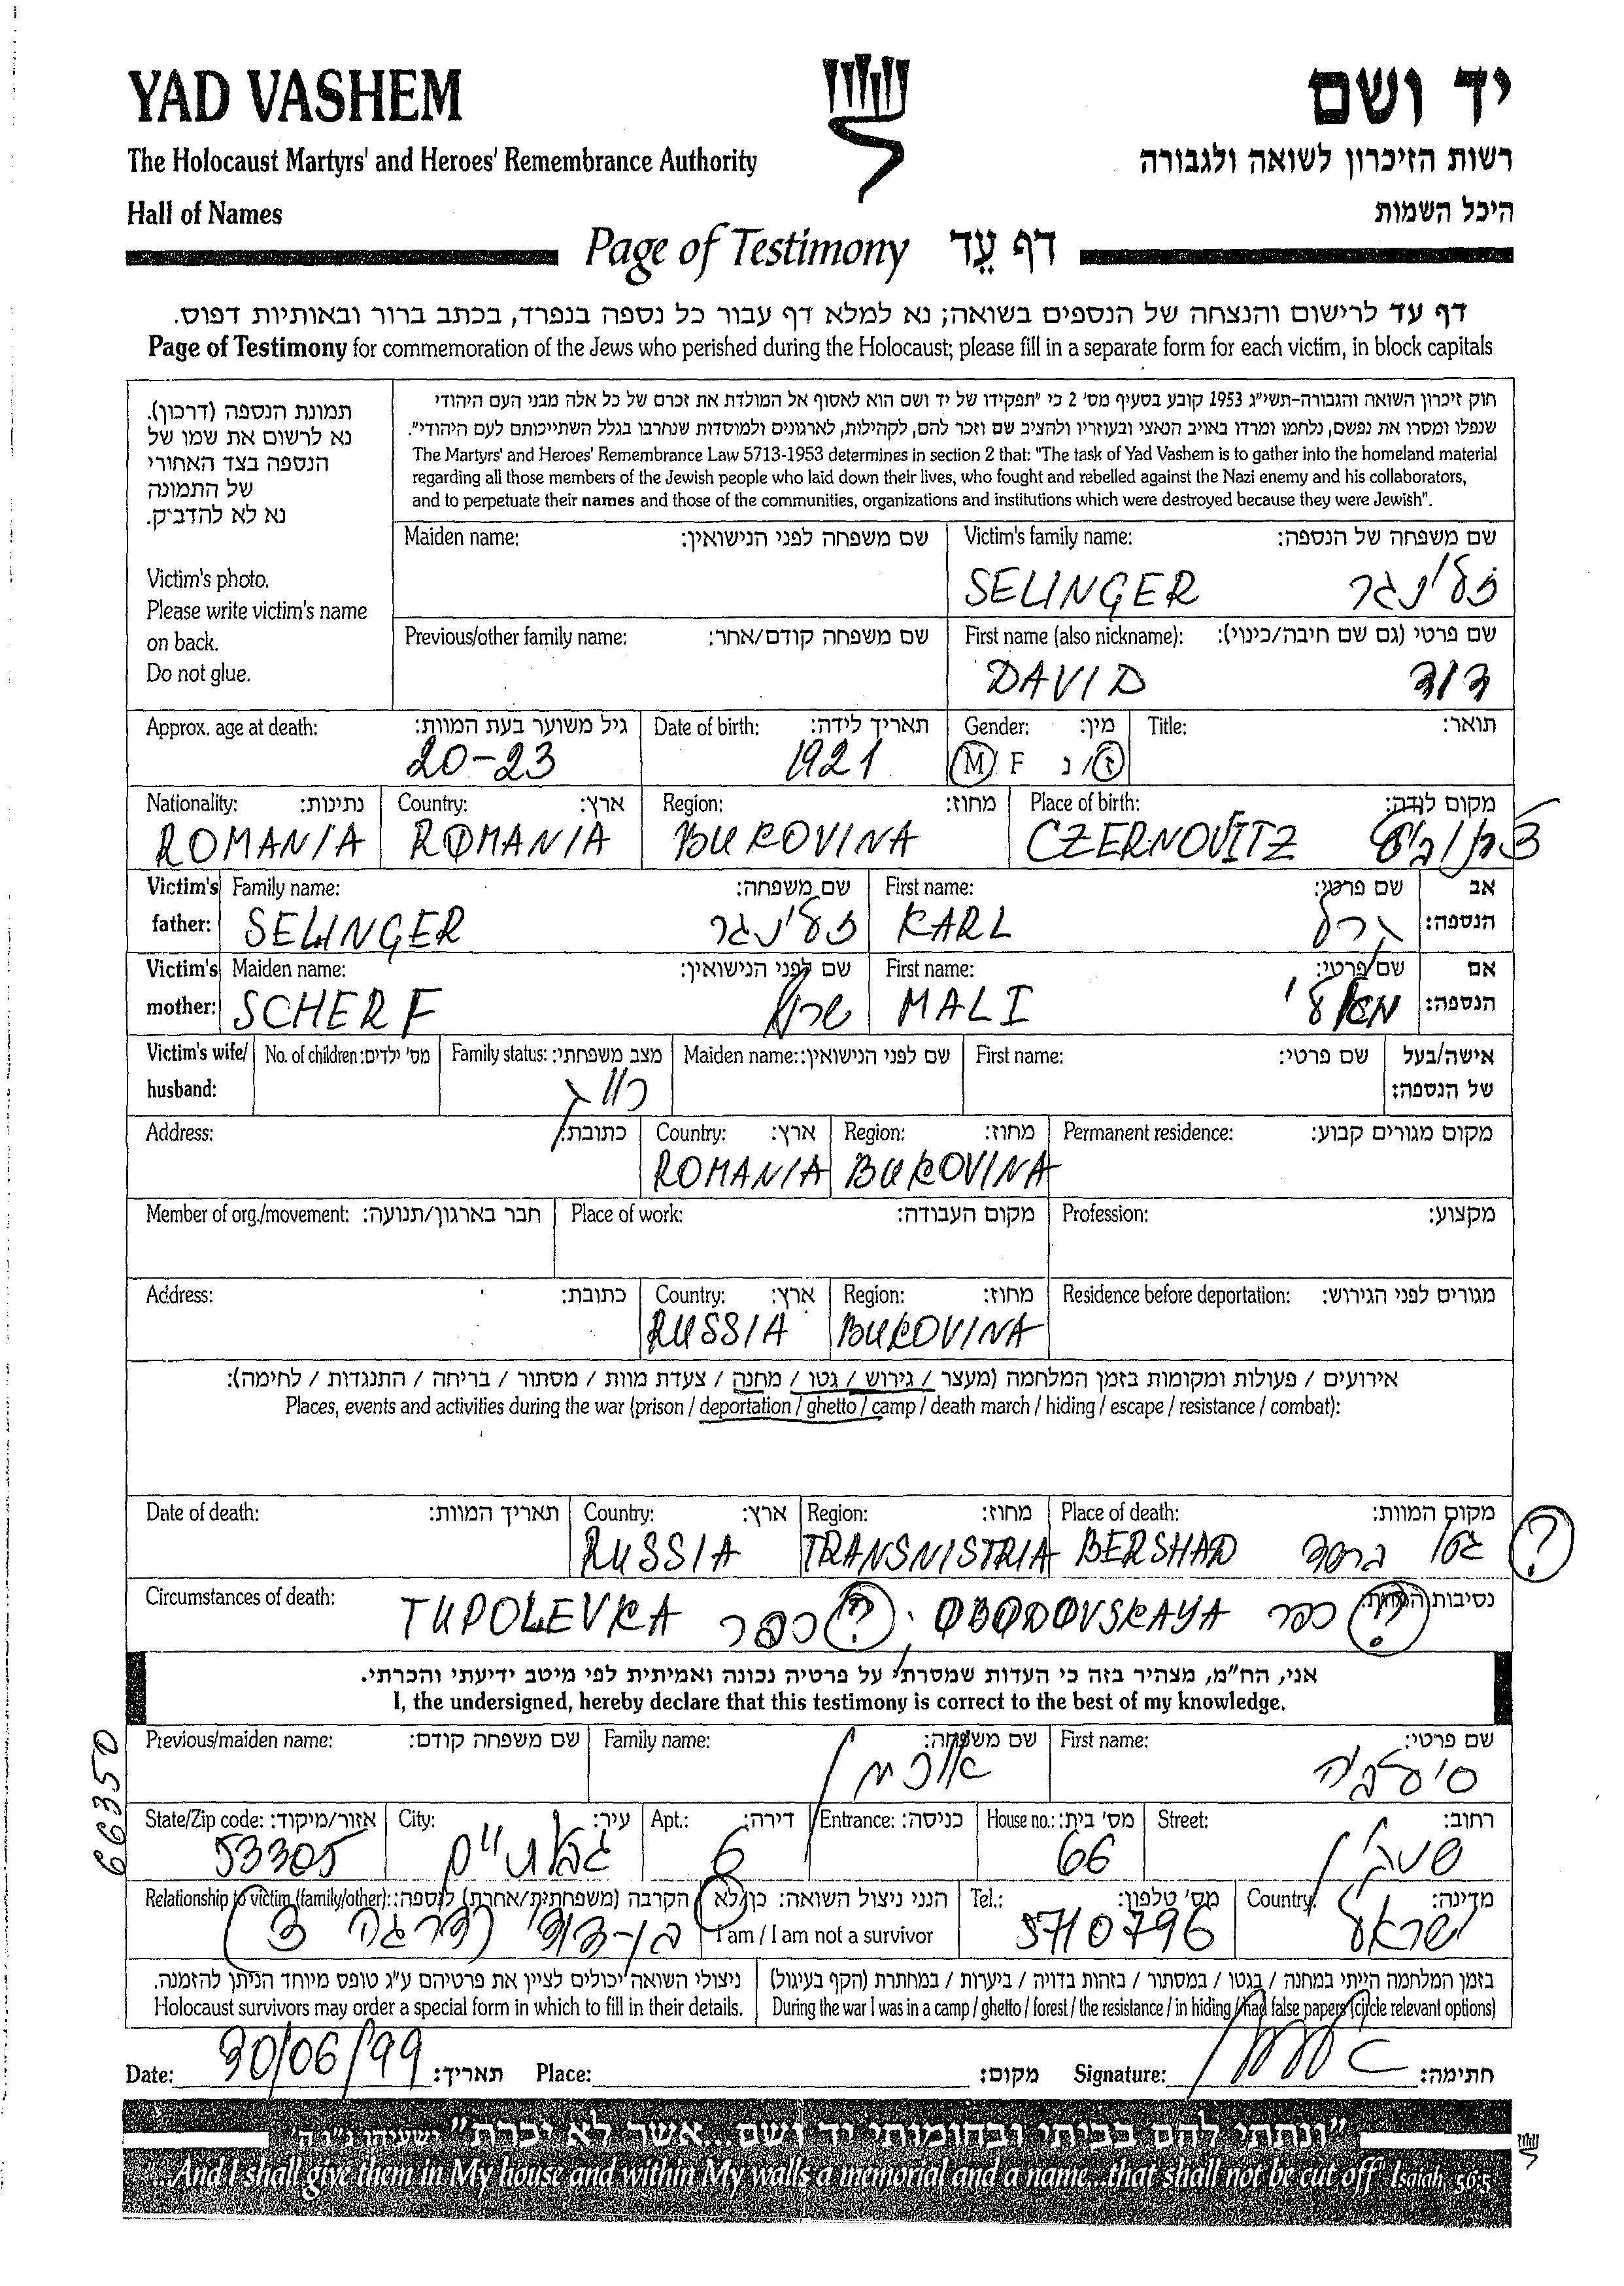 YAD VASHEM
יד ושם
The Holocaust Martyrs' and Heroes' Remembrance Authority
רשות הזיכרון לשואה ולגבורה
Hall of Names
היכל השמות
Page of Testimony דף עֵד
דף עד לרישום והנצחה של הנספים בשואה; נא למלא דף עבור כל נספה בנפרד, בכתב ברור ובאותיות דפוס.
Page of Testimony for commemoration of the Jews who perished during the Holocaust; please fill in a separate form for each victim, in block capitals
תמונת הנספה (דרכון).
נא לרשום את שמו של
הנספה בצד האחורי
של התמונה
נא לא להדביק.
Victim's photo.
Please write victim's name
on back.
Do not glue.
חוק זיכרון השואה והגבורה-תשי"ג 1953 קובע בסעיף מס' 2 כי "תפקידו של יד ושם הוא לאסוף אל המולדת את זכרם של כל אלה מבני העם היהודי
שנפלו ומסרו את נפשם, נלחמו ומרדו באויב הנאצי ובעוזריו ולהציב שם וזכר להם, לקהילות, לארגונים ולמוסדות שנחרבו בגלל השתייכותם לעם היהודי".
The Martyrs' and Heroes' Remembrance Law 5713-1953 determines in section 2 that: "The task of Yad Vashem is to gather into the homeland material
regarding all those members of the Jewish people who laid down their lives, who fought and rebelled against the Nazi enemy and his collaborators,
and to perpetuate their names and those of the communities, organizations and institutions which were destroyed because they were Jewish".
Maiden name: שם משפחה לפני הנישואין: Victim's family name: שם משפחה של הנספה:
SELINGER זלינגר
Previous/other family name: שם משפחה קודם/אחר: First name (also nickname): שם פרטי (גם שם חיבה/כינוי):
DAVID דוד
Approx. age at death: גיל משוער בעת המוות: Date of birth: תאריך לידה: Gender: מין: Title: תואר:
20-23 1921 M F ז/נ
Nationality: נתינות: Country: ארץ: Region: מחוז: Place of birth: מקום לידה:
ROMANIA ROMANIA BUKOVINA CZERNOVITZ צרנוביץ
Victim's Family name: שם משפחה: First name: שם פרטי: אב
father: SELINGER זלינגר KARL קרל הנספה:
Victim's Maiden name: שם לפני הנישואין: First name: שם פרטי: אם
mother: SCHERF שרף MALI מאלי הנספה:
Victim's wife/ No. of children: מס' ילדים: Family status: מצב משפחתי: Maiden name: שם לפני הנישואין: First name: שם פרטי: אישה/בעל
husband: רווק של הנספה:
Address: כתובת: Country: ארץ: Region: מחוז: Permanent residence: מקום מגורים קבוע:
ROMANIA BUKOVINA
Member of org./movement: חבר בארגון/תנועה: Place of work: מקום העבודה: Profession: מקצוע:
Address: כתובת: Country: ארץ: Region: מחוז: Residence before deportation: מגורים לפני הגירוש:
RUSSIA BUKOVINA
אירועים / פעולות ומקומות בזמן המלחמה (מעצר / גירוש / גטו / מחנה / צעדת מוות / מסתור / בריחה / התנגדות / לחימה):
Places, events and activities during the war (prison / deportation / ghetto / camp / death march / hiding / escape / resistance / combat):
Date of death: תאריך המוות: Country: ארץ: Region: מחוז: Place of death: מקום המוות:
RUSSIA TRANSNISTRIA BERSHAD גטו ברשד ?
Circumstances of death: נסיבות המוות:
TUPOLEVKA כפר ?, OBODOVSKAYA כפר ?
אני, הח"מ, מצהיר בזה כי העדות שמסרתי על פרטיה נכונה ואמיתית לפי מיטב ידיעתי והכרתי.
I, the undersigned, hereby declare that this testimony is correct to the best of my knowledge.
Previous/maiden name: שם משפחה קודם: Family name: שם משפחה: First name: שם פרטי:
סילביה
State/Zip code: אזור/מיקוד: City: עיר: Apt.: דירה: Entrance: כניסה: House no.: מס' בית: Street: רחוב:
53305 גבעתיים 6 66
66350
Relationship to victim (family/other): הקרבה (משפחתית/אחרת) לנספה: הנני ניצול השואה: כן/לא Tel.: מס' טלפון: Country: מדינה:
בן-דוד (דרגה 3) I am / I am not a survivor 5710796 ישראל
ניצולי השואה יכולים לציין את פרטיהם ע"ג טופס מיוחד הניתן להזמנה. בזמן המלחמה הייתי במחנה / בגטו / במסתור / בזהות בדויה / ביערות / במחתרת (הקף בעיגול)
Holocaust survivors may order a special form in which to fill in their details. During the war I was in a camp / ghetto / forest / the resistance / in hiding / had false papers (circle relevant options)
Date: 30/06/99 תאריך: Place: מקום: Signature: חתימה:
"ונתתי להם בביתי ובחומותי יד ושם...אשר לא יכרת" ישעיהו נ"ו ה'
"...And I shall give them in My house and within My walls a memorial and a name...that shall not be cut off" Isaiah 56:5